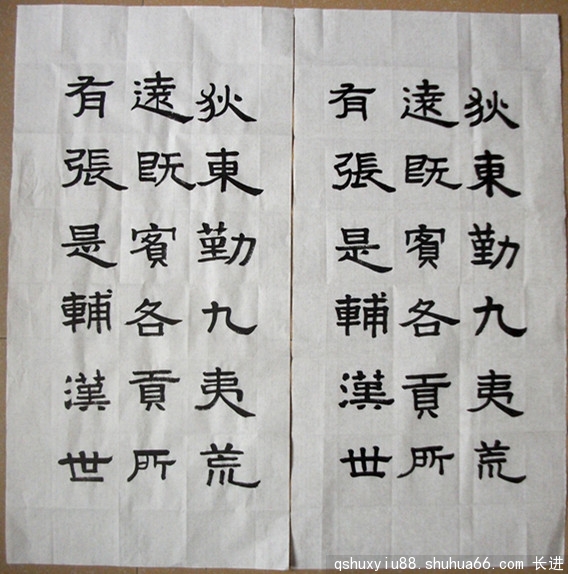 狄東勤九夷荒
遠既賓各貢所
有張是輔漢世
狄東勤九夷荒
遠既賓各貢所
有張是輔漢世
qshuxyiu88.shuhua66.com 长进